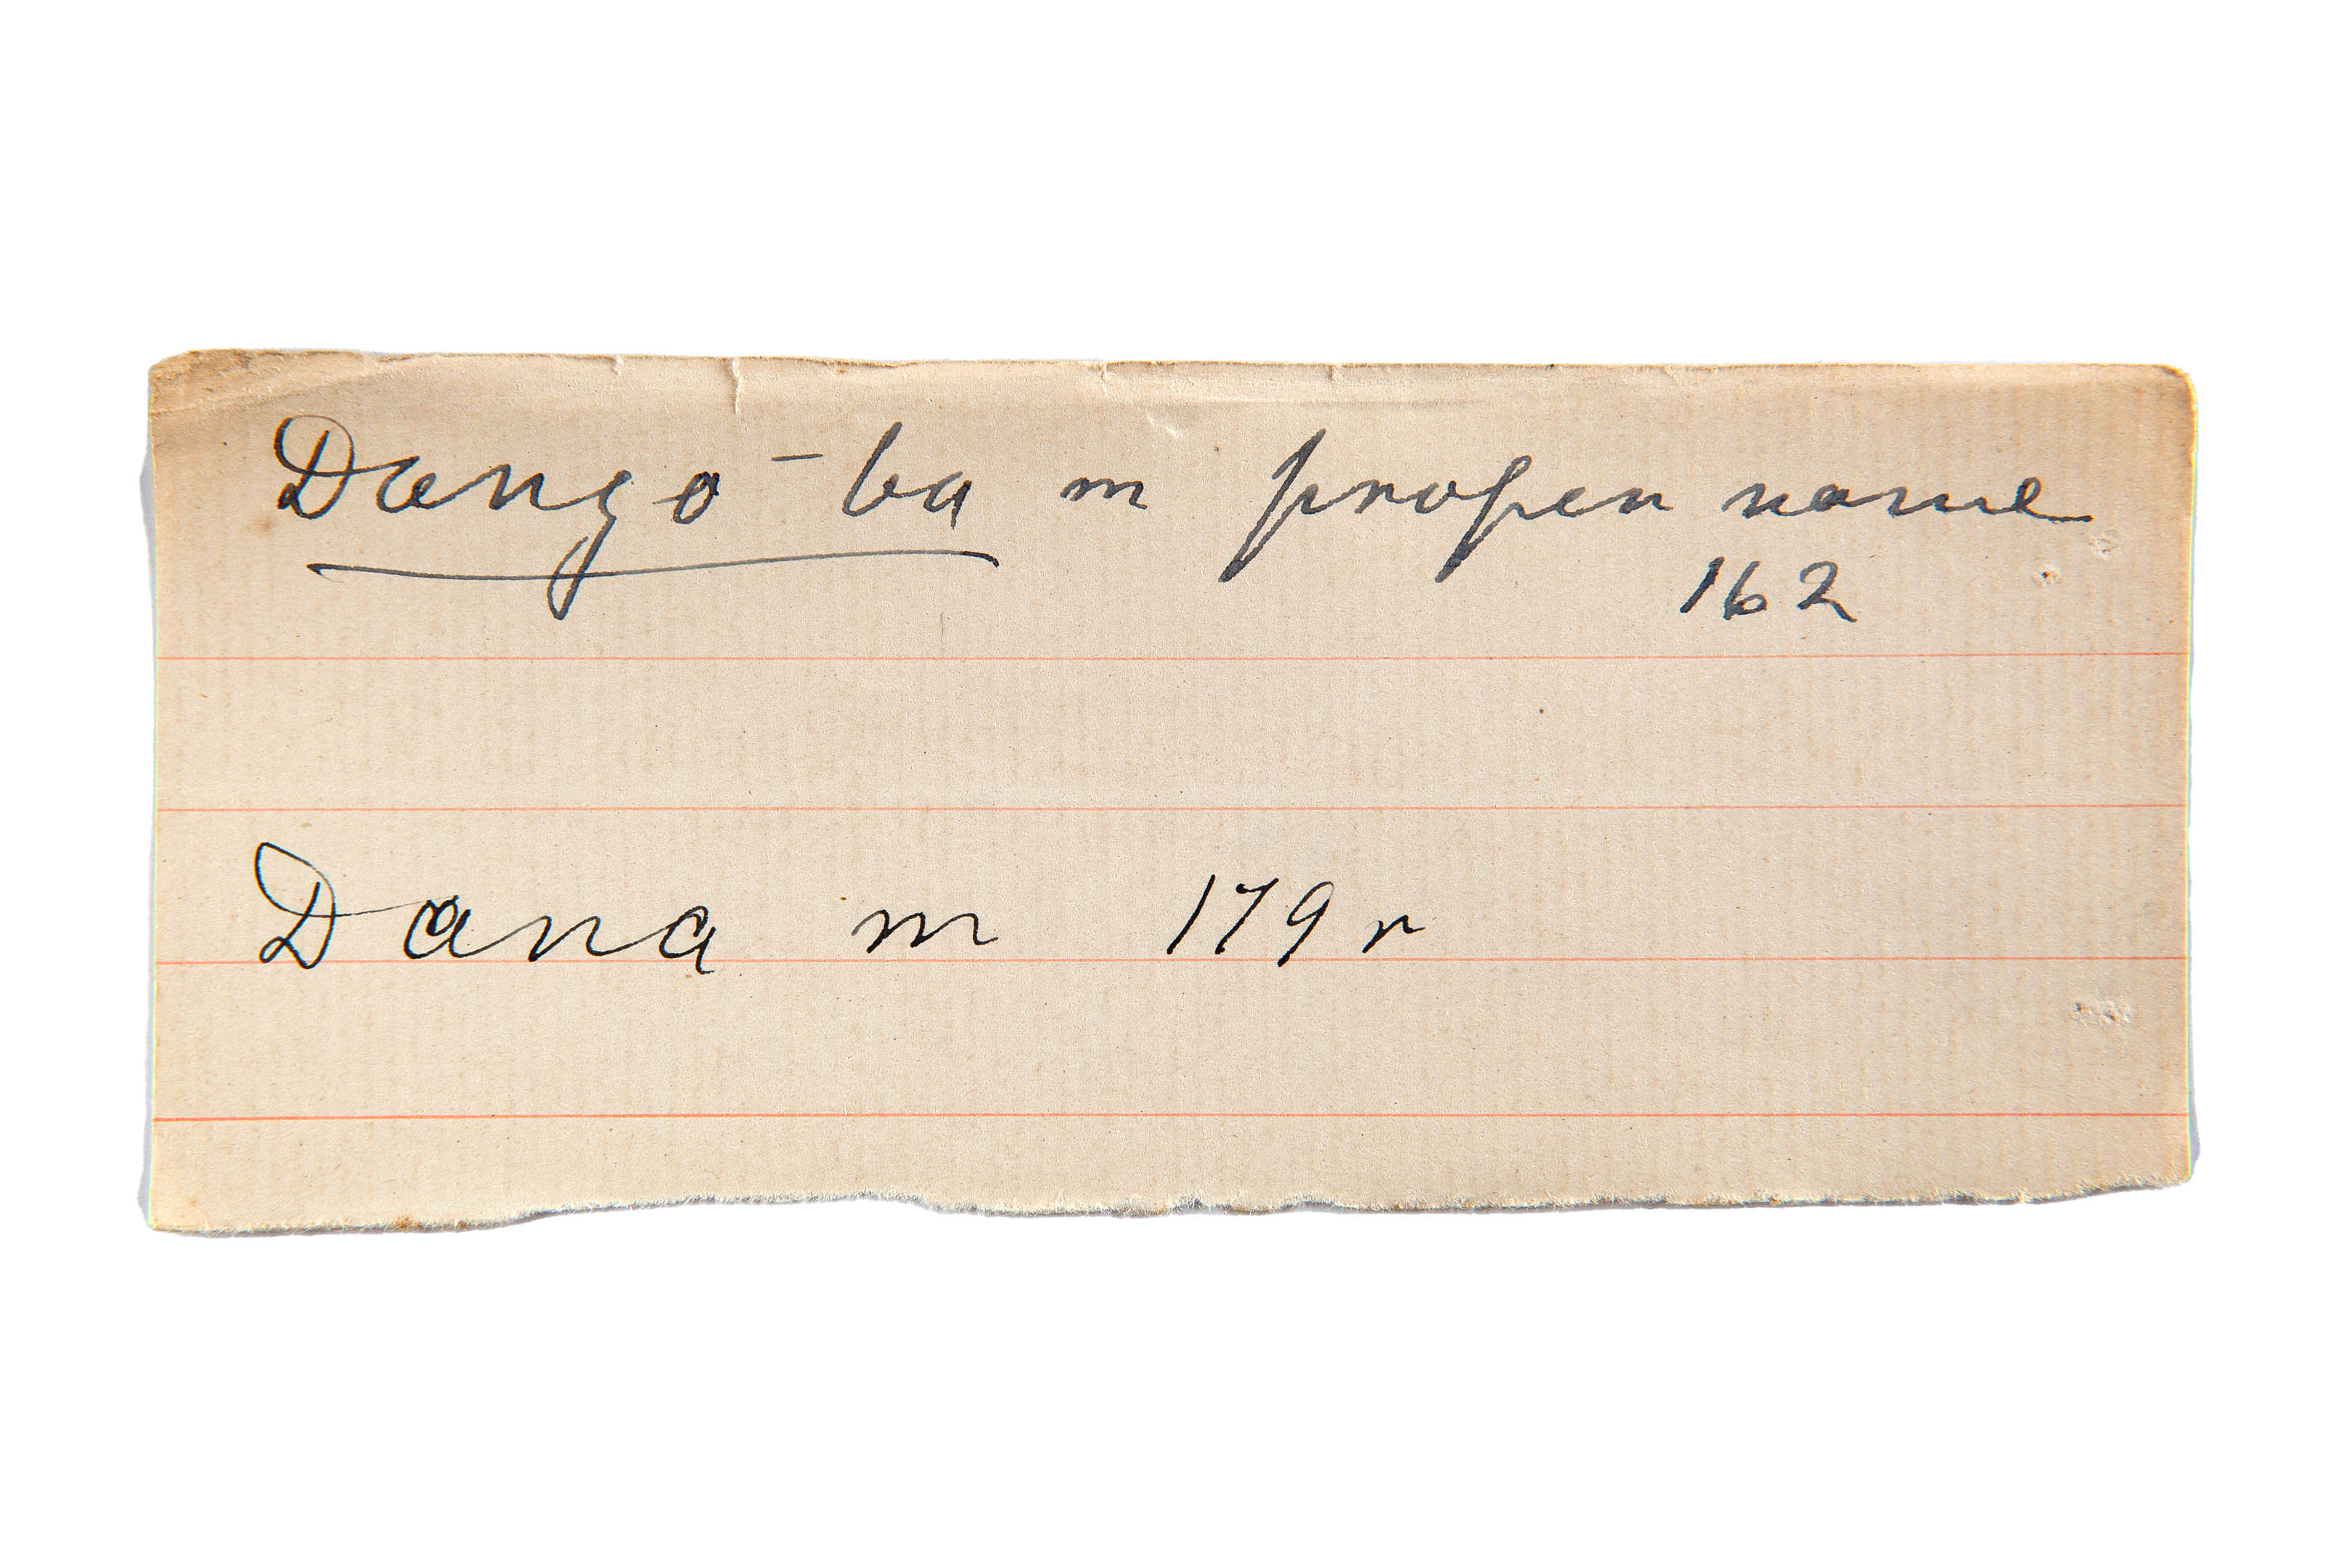 Dango-ba m proper name
162
Dana m 179 r